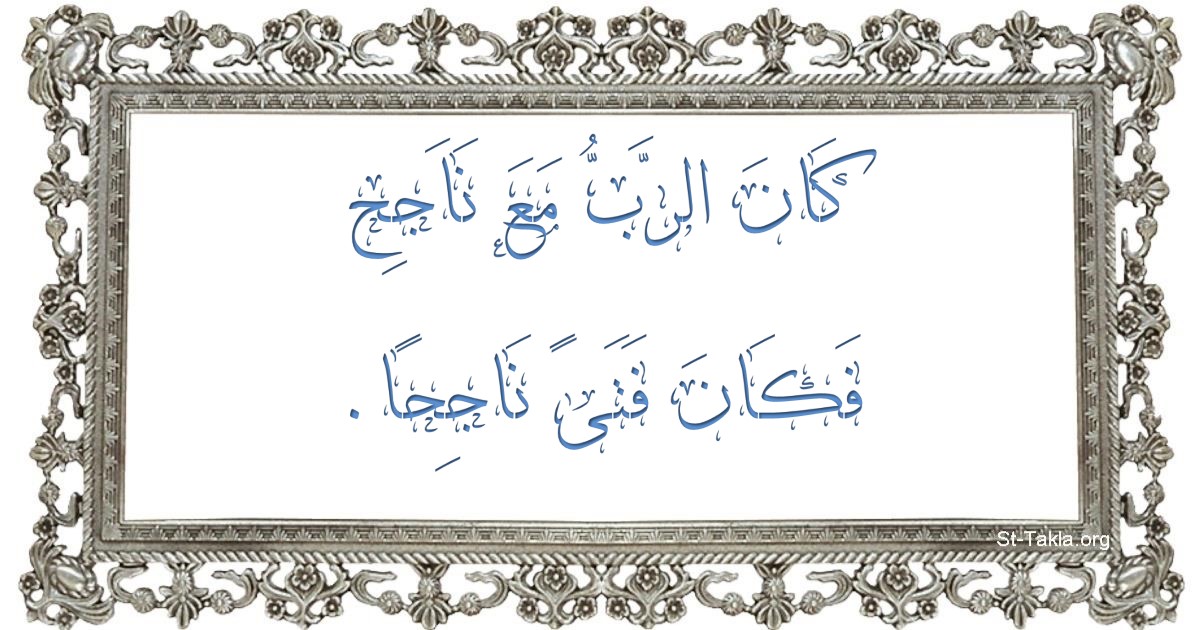 كَانَ الرَّبُّ مَعَ نَاَجِح
فَكَانَ فَتَىً نَاَجِحًا .
St-Takla.org